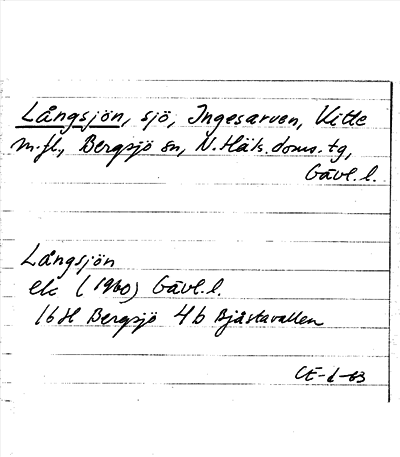 Långsjön, sjö, Ingesarven, Vitte
m.fl., Bergsjö sn, N. Häls. doms. tg,
Gävl. l.
Långsjön
ek (1960) Gävl. l.
16H Bergsjö 4b Bjåstavallen